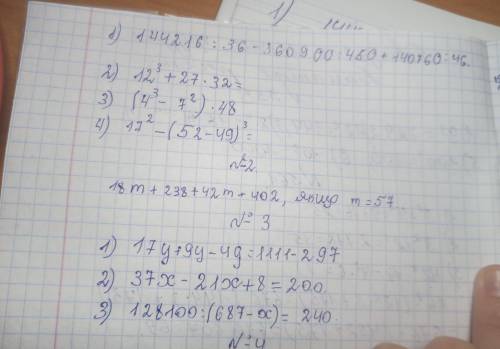 1) 144216 : 36 - 360900 : 450 + 140760 : 46.
2) 12³ + 27 · 32 =
3) (4³ - 7²) · 48
4) 17² - (52 - 49)³ =
№2.
18m + 238 + 42m + 402, якщо m = 57.
№ 3
1) 17y + 9y - 4y = 1111 - 297
2) 37x - 21x + 8 = 200.
3) 128100 : (687 - x) = 240.
№4